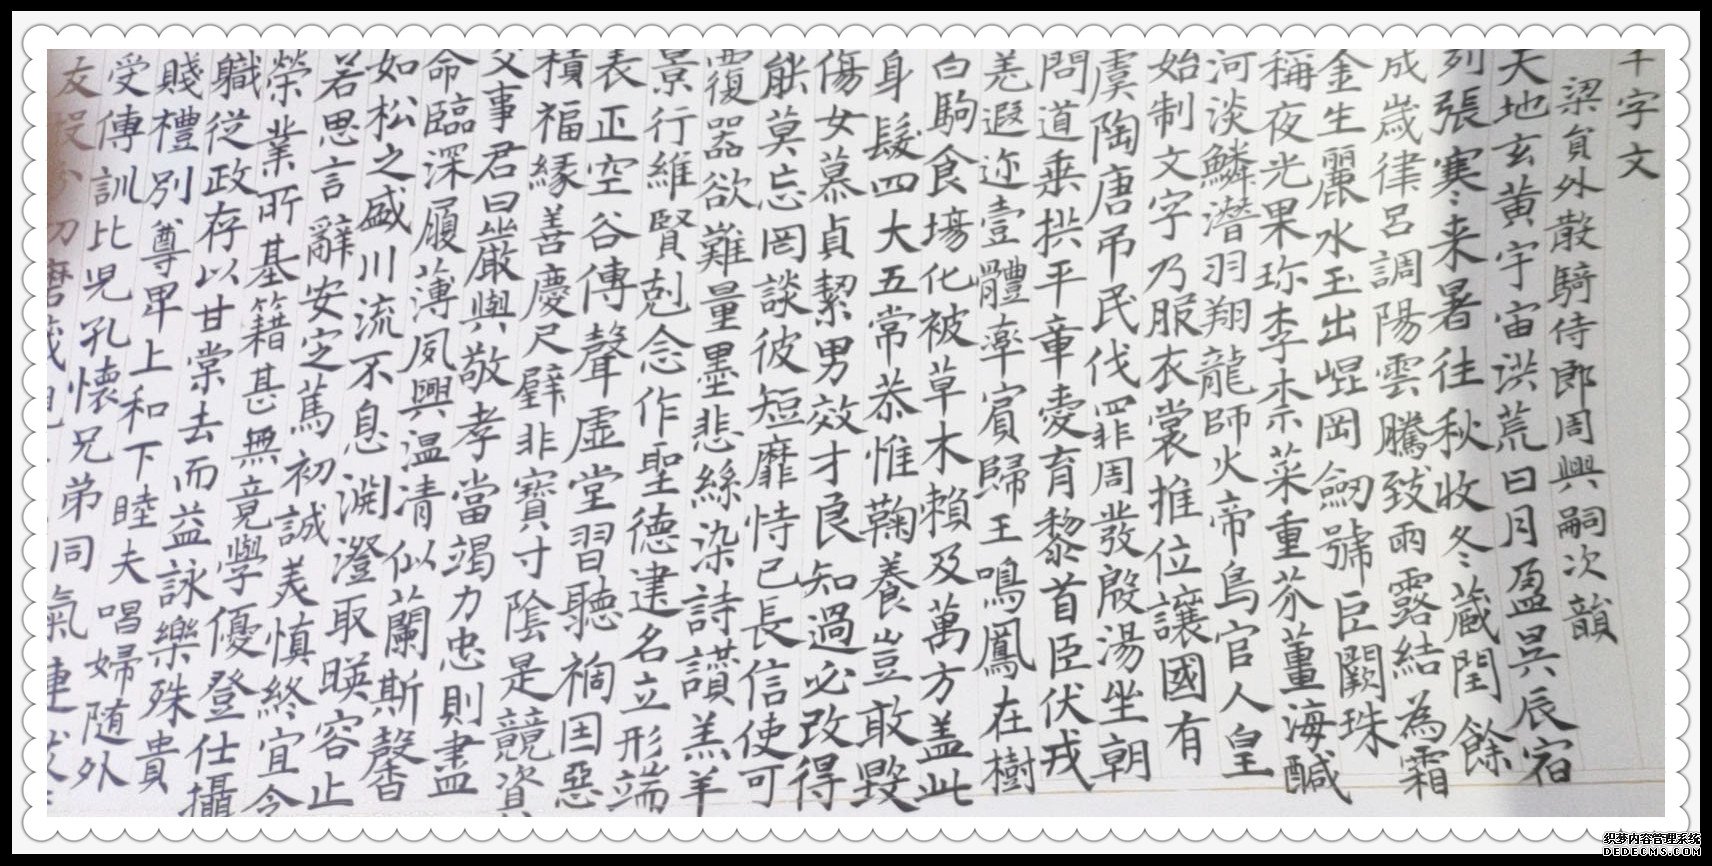 千字文
梁貟外散騎侍郎周興嗣次韻
天地玄黄宇宙洪荒日月盈昃辰宿
列張寒来暑往秋收冬蔵閏餘
成歳律呂調陽雲騰致雨露結為霜
金生麗水玉出崐岡劒號巨闕珠
稱夜光果珎李柰菜重芥薑海醎
河淡鱗潛羽翔龍師火帝鳥官人皇
始制文字乃服衣裳推位讓國有
虞陶唐吊民伐罪周發殷湯坐朝
問道垂拱平章愛育黎首臣伏戎
羌遐迩壹體率賓歸王鳴鳳在樹
白駒食場化被草木賴及萬方盖此
身髮四大五常恭惟鞠養豈敢毀
傷女慕貞絜男效才良知過必改得
能莫忘罔談彼短靡恃己長信使可
覆器欲難量墨悲絲染詩讃羔羊
景行維賢剋念作聖德建名立形端
表正空谷傳聲虛堂習聽禍因惡
積福緣善慶尺璧非寶寸陰是競資
父事君曰嚴與敬孝當竭力忠則盡
命臨深履薄夙興温清似蘭斯馨
如松之盛川流不息淵澄取暎容止
若思言辭安定篤初誠美慎終宜令
榮業所基籍甚無竟學優登仕攝
職従政存以甘棠去而益詠樂殊貴
賤禮別尊卑上和下睦夫唱婦随外
受傳訓比兒孔懷兄弟同氣連
友投分切磨箴
织梦内容管理系统
DEDECMS.COM